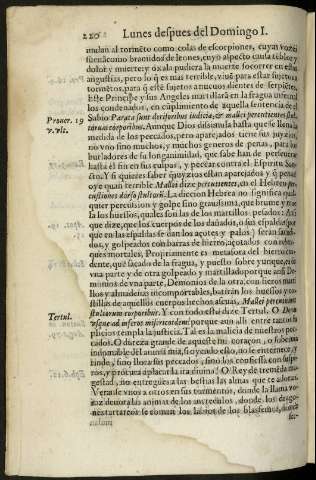 220 Lunes despues del Domingo I.
mulan al tormẽto como colas de escorpiones, cuyas vozes
suenã como bramidos de leones, cuyo aspecto causa temblor y
dolor y muerte: y oxala pudiera la muerte socorrer en estas
angustias, pero lo q̃ es mas terrible, viuẽ para estar sujetos a
tormẽtos, para q̃ estẽ sujetos a nueuos dientes de serpiẽtes.
Este Principe y sus Angeles martillarã en la fragua infernal
los condenados, en cumplimiento de aquella sentencia del
Prouer. 19
v. vlt.
Sabio Parata sunt derisoribus iudicia, & mallei percutientes stul-
torum corporibus. Aunque Dios dissimula hasta que se llena la
medida de los peccados, pero aparejados tiene sus juyzios,
no vno sino muchos, y muchos generos de penas, para los
burladores de su longanimidad, que sabe han de perseuerar
hasta el fin en sus culpas, y peccar contra el Espiritu San-
cto. Y si quieres saber q̃ juyzios estan aparejados y q̃ penas
oye quan terrible Mallei dize percutientes, en el Hebreo per-
cussiones dorso stultorũ. La diccion Hebrea no significa qual-
quier percussion y golpe sino grauissima, que brume y
los huessos, quales son las de los martillos pesados: Aũ-
que dize, que los cuerpos de los dañados, o sus espaldas (por
que en las espaldas se dan los açotes y palos) seran sacudi-
dos, y golpeados con barras de hierro, açotados con
ques mortales, Propriamente es metafora del hierro
dente, que saçado de la fragua, y puesto sobre yunque, es de
vna parte y de otra golpeado y martillado porque assi De-
monios de vna parte, Demonios de la otra, con fieros marti
llos y almadeñas incomportables, batirán los huessos y
stillas de aquellos cuerpos hechos ascuas, Mallei percutient
Tertul.
stultorum corporibus. Y con todo esto dize Tertul. O Deum
vsque ad inferos misericordem! porque aun alli entre tantos su
plicios templa la justicia. Tal es la malicia de nuestros pec-
cados. O dureza grande de aqueste mi coraçon, o soberuia
indomable del anima mia, si oyendo esto, no te enterneces, y
rindes, sino lloras tus peccados, sino los confiessas con suspi-
ros, y procuras aplacar la ira diuina! O Rey de tremẽda ma-
gestad, no entregues a las bestias las almas que te adoran.
Veras de vnos a otros en sus tormentos, donde la llama vo-
raz deuora las animas de los incredulos, donde los drago-
nes tartareos se comen los labios de los blasfemos, donde